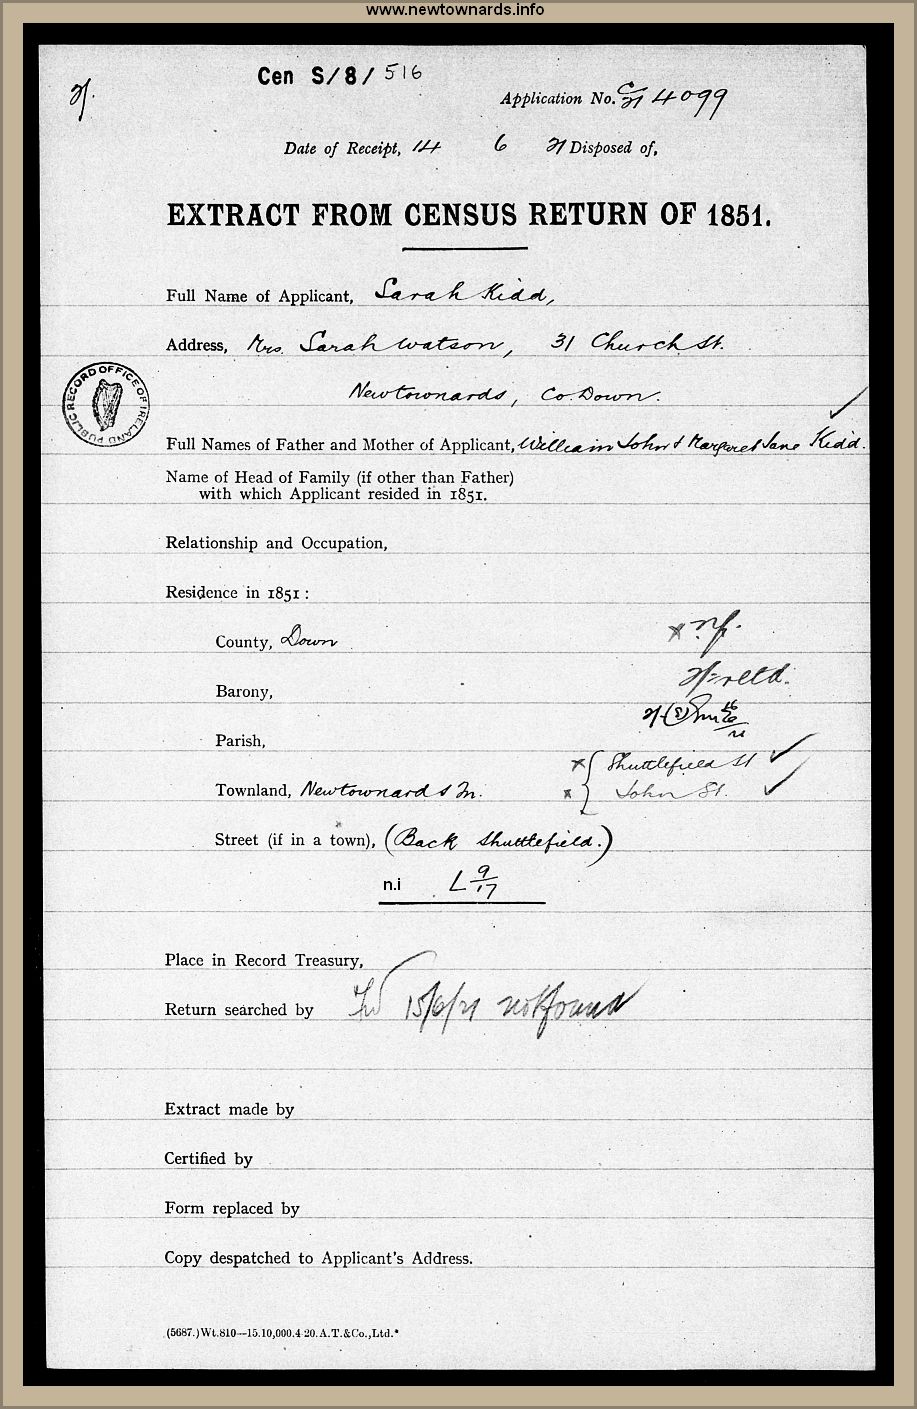 www.newtownards.info
Cen S/8/ 516
21.
Application No. C/21 4099
Date of Receipt, 14 6 21 Disposed of,
EXTRACT FROM CENSUS RETURN OF 1851.
Full Name of Applicant, Sarah Kidd,
Address, Mrs. Sarah Watson, 31 Church St.
Newtownards, Co Down.
PUBLIC RECORD OFFICE OF IRELAND
Full Names of Father and Mother of Applicant, William John & Margaret Jane Kidd.
Name of Head of Family (if other than Father)
with which Applicant resided in 1851.
Relationship and Occupation,
Residence in 1851 :
County, Down
x n.f.
Barony,
retd.
Parish,
x Shuttlefield St ✓
Townland, Newtownards
x John St. ✓
Street (if in a town), (Back Shuttlefield.)
n.i L 9/17
Place in Record Treasury,
Return searched by 15/6/21 not found
Extract made by
Certified by
Form replaced by
Copy despatched to Applicant's Address.
(5687.)Wt.810—15.10,000.4 20.A.T.&Co.,Ltd.